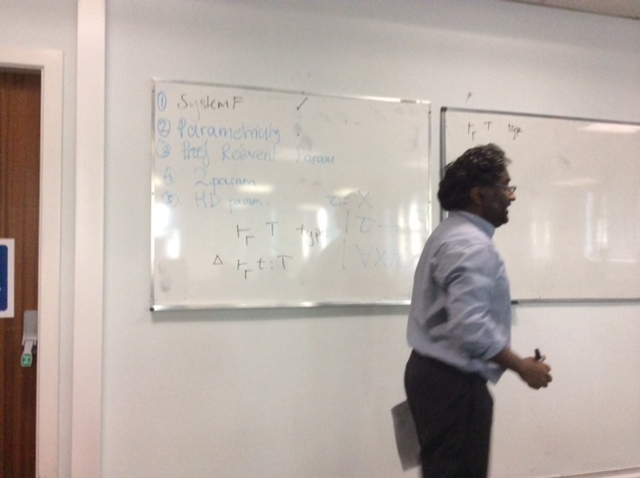 ① System F ✓
② Parametricity
③ Proof Relevant Param
④ 2 param
⑤ HD param
τ = X
⊢Γ T type
| τ
Δ ⊢Γ t : T
| ∀X
⊢Γ T type